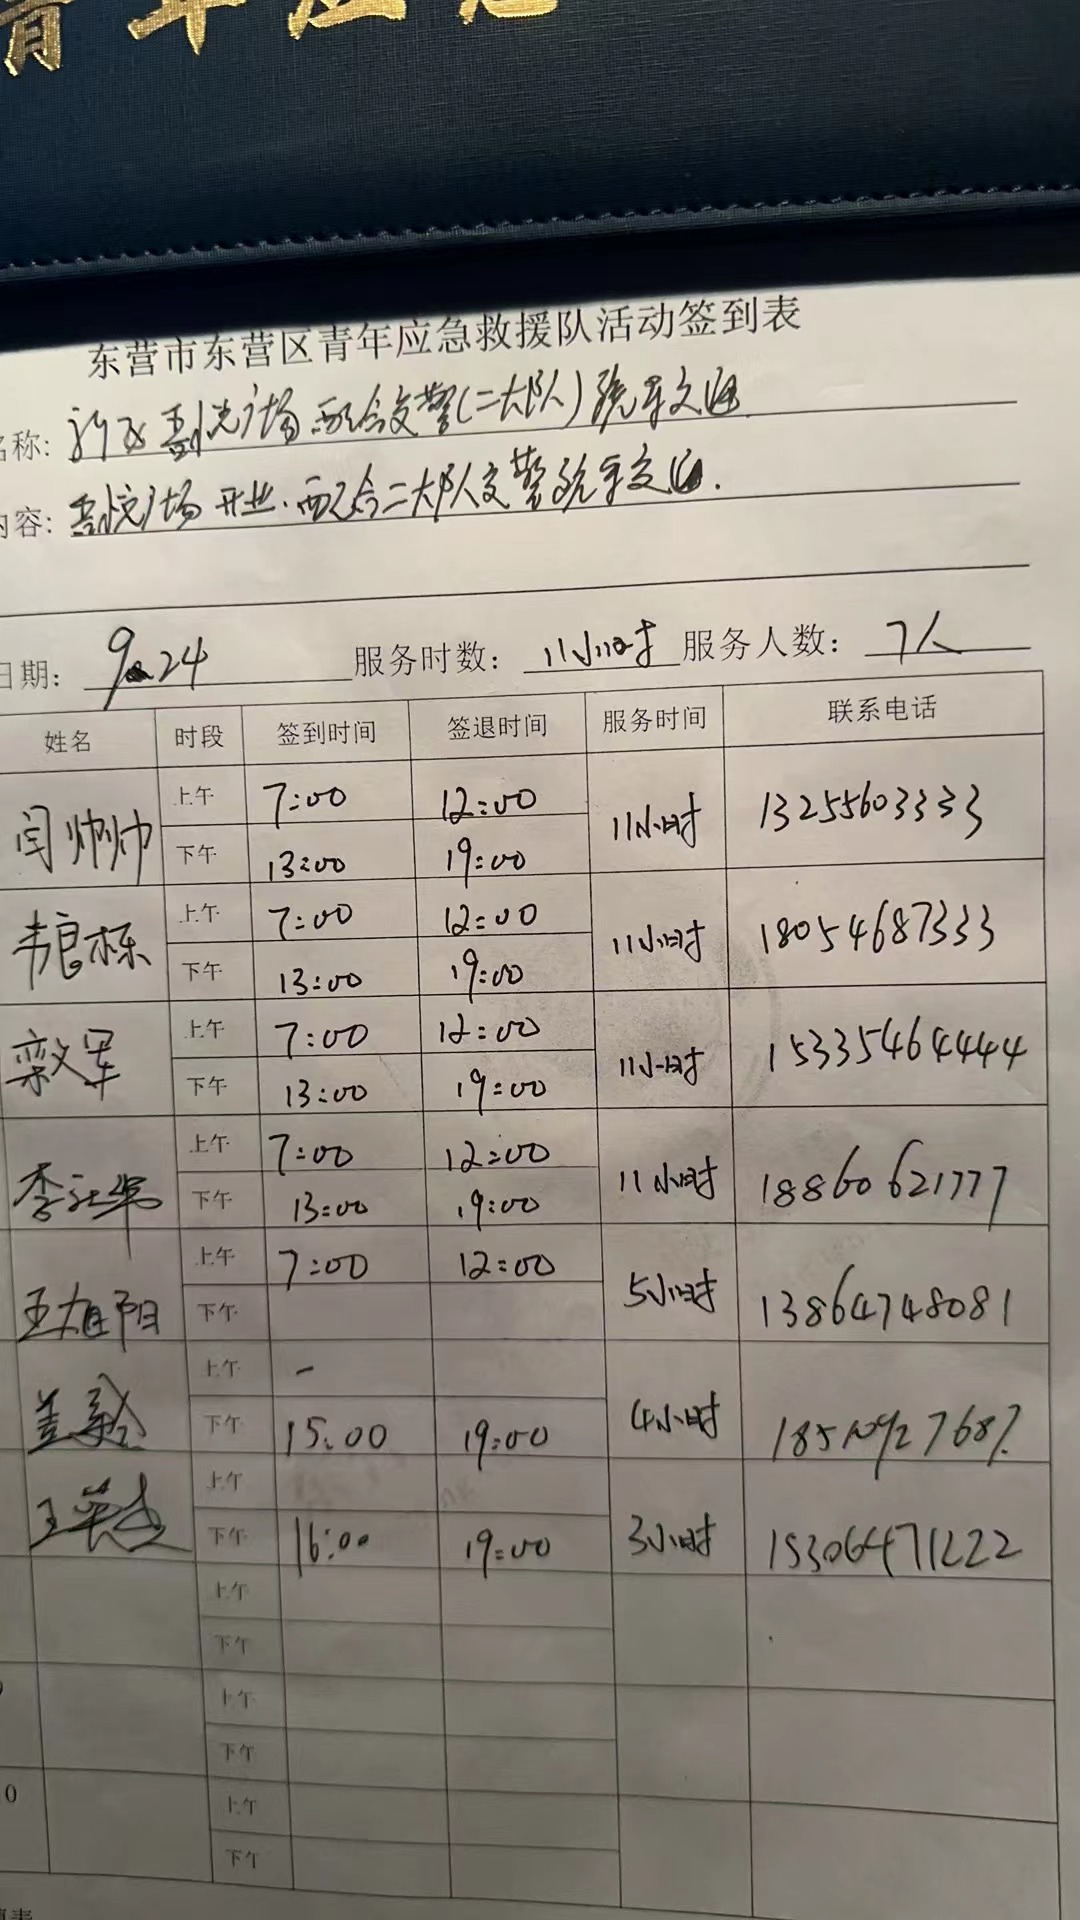 青年应急
东营市东营区青年应急救援队活动签到表
名称: 吾悦广场配合交警(二大队)疏导交通
内容: 吾悦广场开业.配合二大队交警疏导交通.
日期: 9.24 服务时数: 11小时 服务人数: 7人
姓名 时段 签到时间 签退时间 服务时间 联系电话
闫帅帅 上午 7:00 12:00 11小时 13255603333
下午 13:00 19:00
韦良栋 上午 7:00 12:00 11小时 18054687333
下午 13:00 19:00
栾文军 上午 7:00 12:00 11小时 15335464444
下午 13:00 19:00
李 上午 7:00 12:00 11小时 18860621777
下午 13:00 19:00
王旭阳 上午 7:00 12:00 5小时 13864748081
下午
上午 -
下午 15:00 19:00 4小时
王英杰 上午
下午 16:00 19:00 3小时 15306471222
上午
下午
上午
下午
0 上午
下午